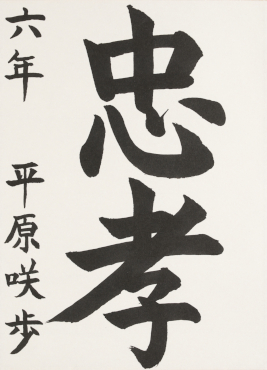 忠孝
六年 平原咲歩